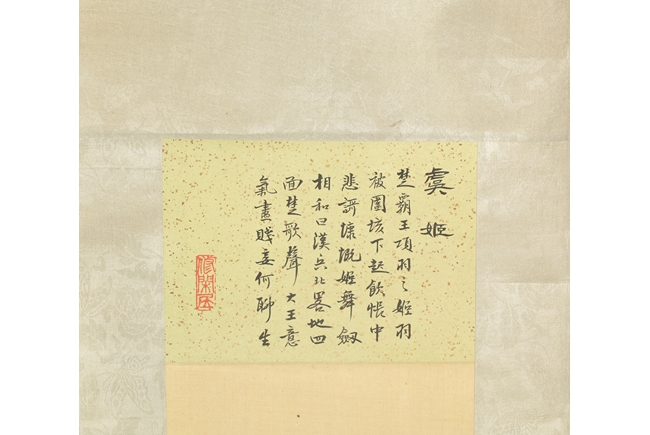 虞姬
楚霸王項羽之姬羽
被圍垓下起飲帳中
悲謌慷慨姬舞劔
相和曰漢兵已畧地四
面楚歌聲大王意
氣盡賤妾何聊生
修閑居